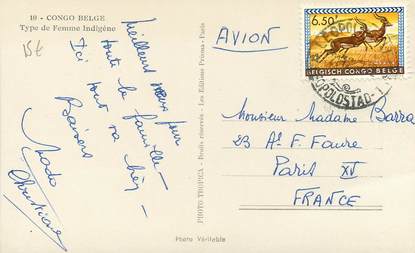 10 - CONGO BELGE
Type de Femme Indigène
15€
Meilleurs vœux pour
toute la famille -
Ici tout va bien -
Baisers
Mado
Christiane
PHOTO TROPICA - Droits réservés - Les Editions Prisma - Paris
Photo Véritable
AVION
6,50
BELGISCH CONGO BELGE
Monsieur Madame Barra
23 Av F. Faure
Paris XV
FRANCE